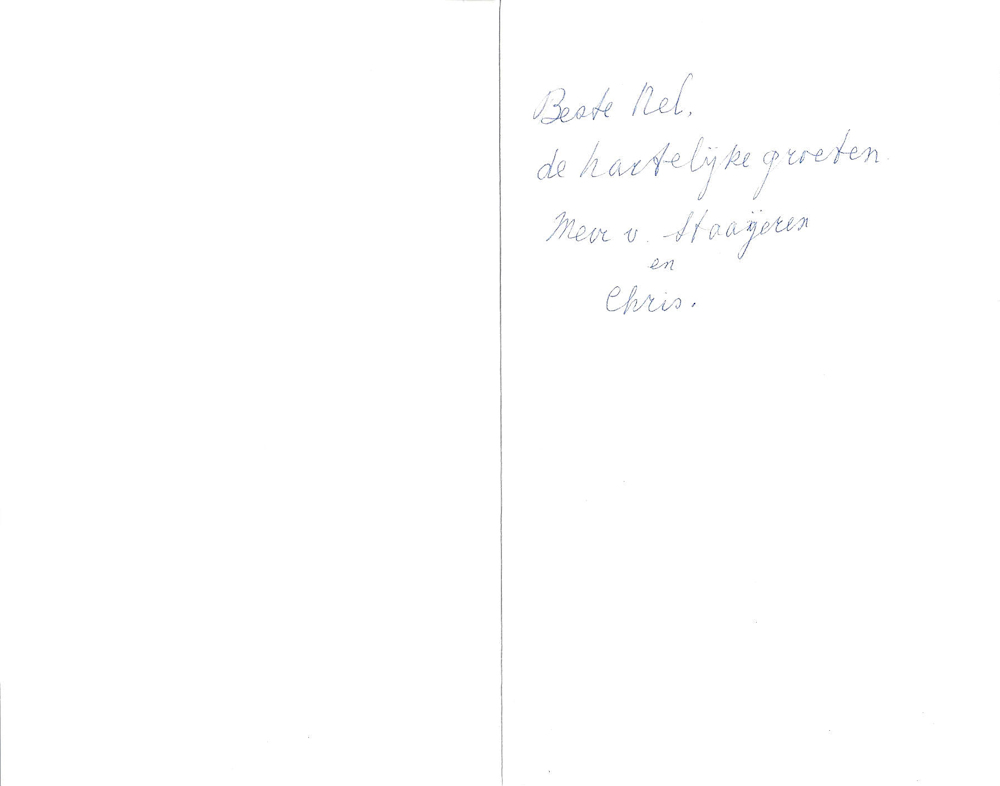 Beste Nel,
de hartelijke groeten
Mevr v. Staaijeren
en
Chris.